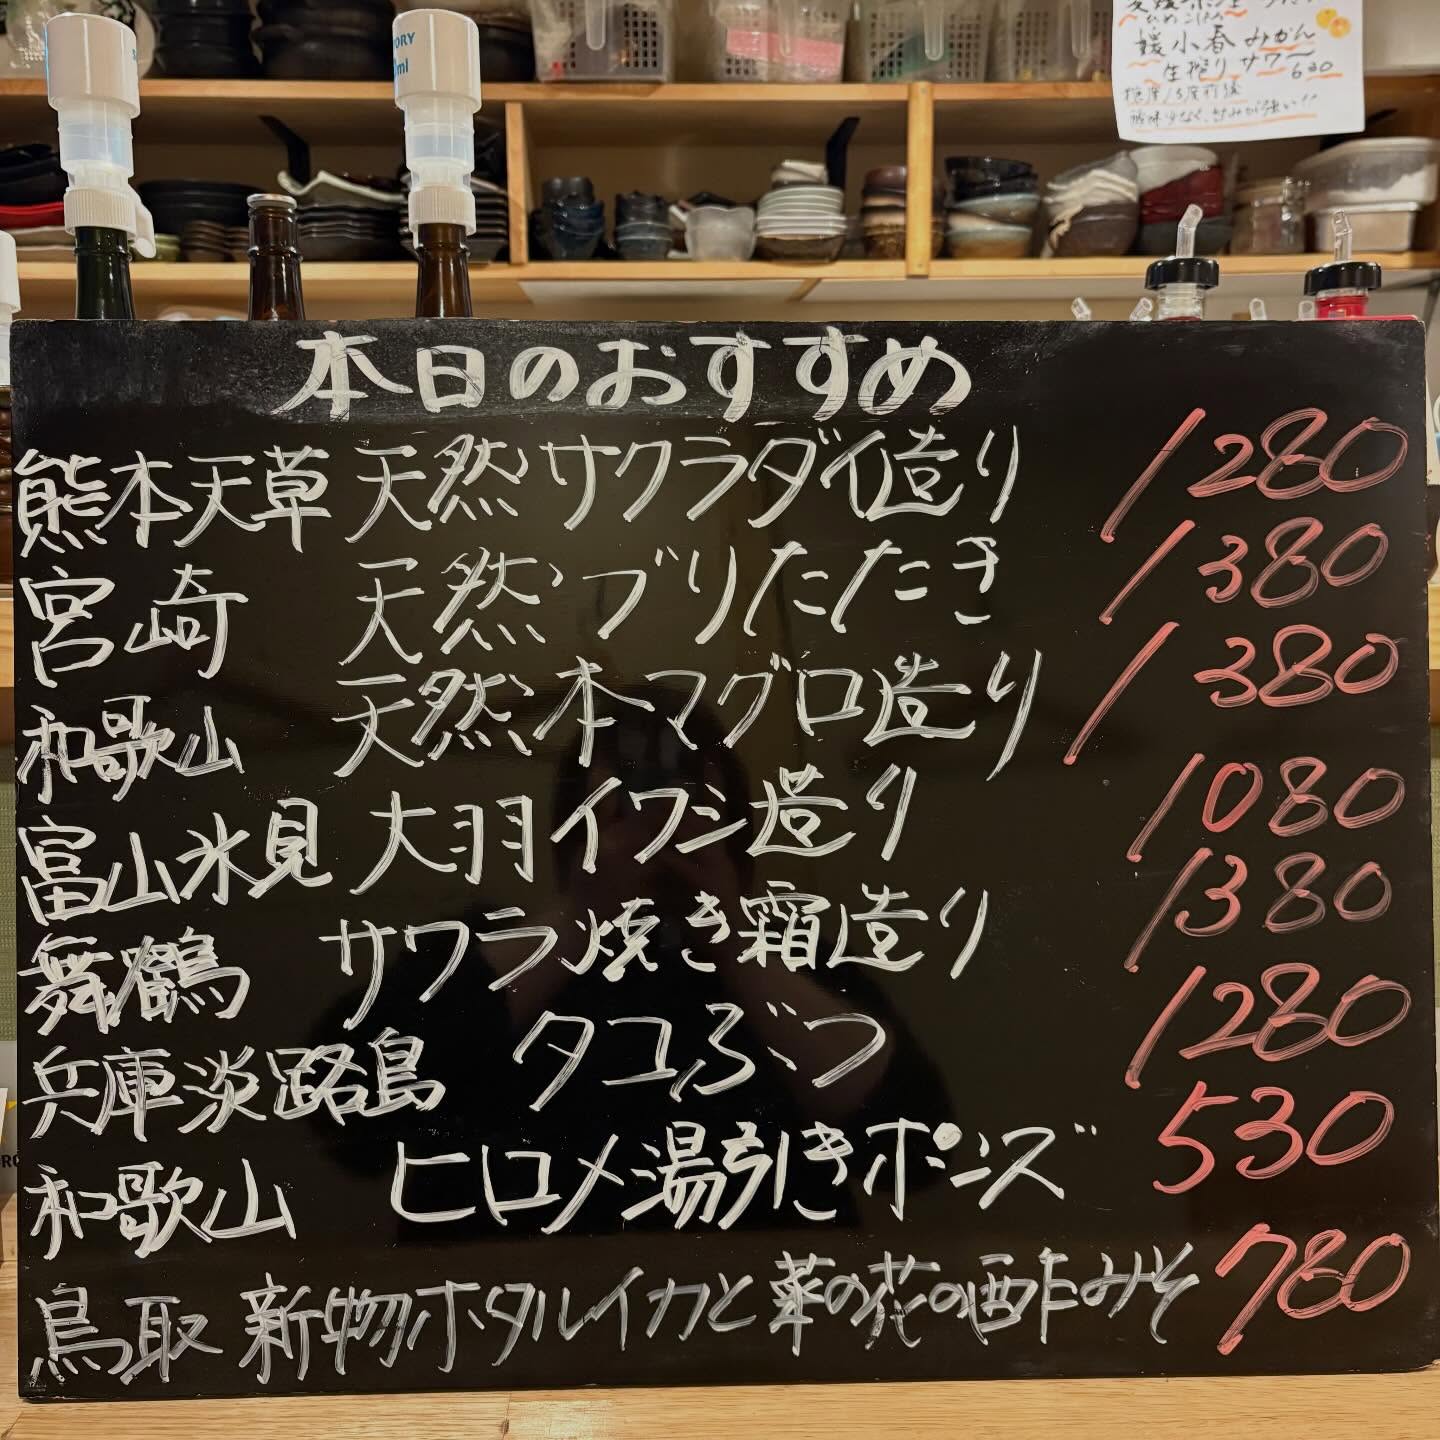 媛小春みかん
生搾りサワー 680
糖度13度前後
酸味少なく、甘みが強い!!
本日のおすすめ
熊本天草 天然サクラダイ造り 1280
宮崎 天然ブリたたき 1380
和歌山 天然本マグロ造り 1380
富山氷見 大羽イワシ造り 1080
舞鶴 サワラ焼き霜造り 1380
兵庫淡路島 タコぶつ 1280
和歌山 ヒロメ湯引きポンズ 530
鳥取 新物ホタルイカと菜の花の酢みそ 780